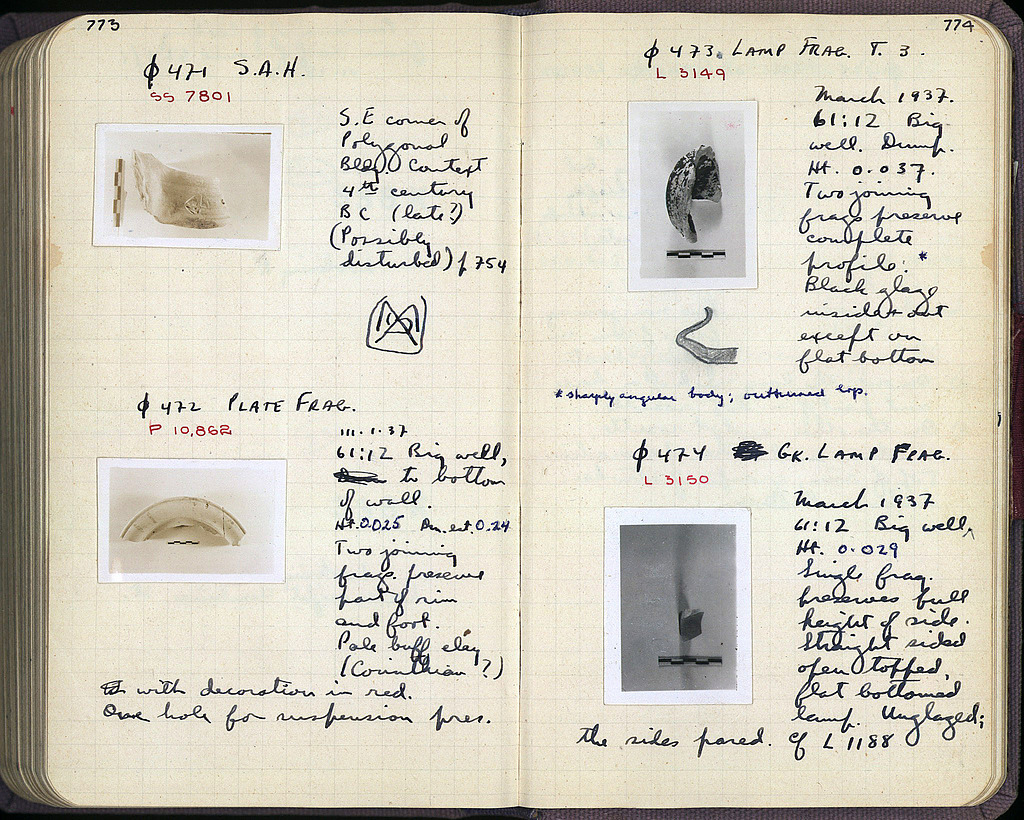 773
φ 471 S.A.H.
SS 7801
S.E corner of
Polygonal
Bldg. Context
4th century
BC (late?)
(Possibly
disturbed) p 754
φ 472 PLATE FRAG.
P 10,862
III.1.37
61:12 Big well,
to bottom
of wall.
Ht. 0.025 Dm. est. 0.24
Two joining
frags. preserve
part of rim
and foot.
Pale buff clay
(Corinthian?)
with decoration in red.
One hole for suspension pres.
774
φ 473. LAMP FRAG. T. 3.
L 3149
March 1937.
61:12 Big
well. Dump.
Ht. 0.037.
Two joining
frags preserve
complete
profile. *
Black glaze
inside + out
except on
flat bottom
* sharply angular body; outturned lip.
φ 474 GK. LAMP FRAG.
L 3150
March 1937
61:12 Big well,
Ht. 0.029
Single frag.
preserves full
height of side.
Straight sided
open topped,
flat bottomed
lamp. Unglazed;
the sides pared. Cf L 1188